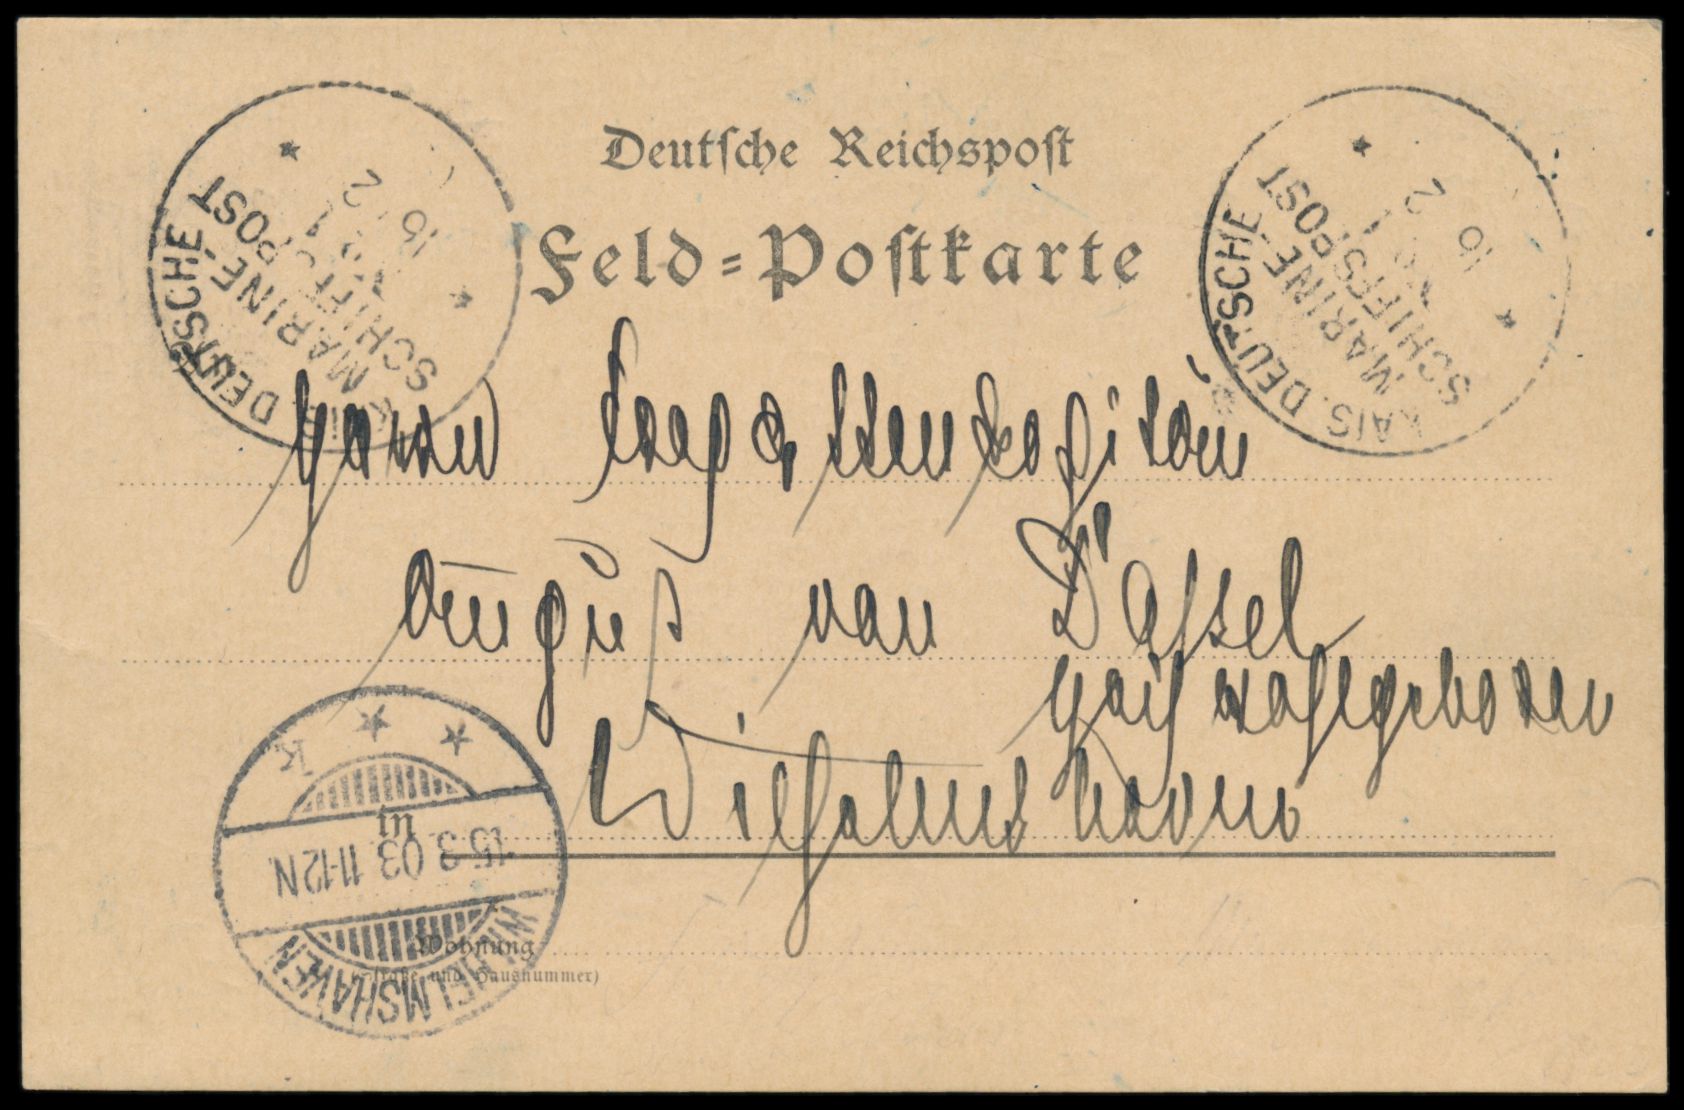 Deutsche Reichspost
Feld-Postkarte
KAIS. DEUTSCHE
MARINE-
SCHIFFSPOST
16 2
KAIS. DEUTSCHE
MARINE-
SCHIFFSPOST
16 2
Herrn Fregattenkapitän
August von Dassel
Hochwohlgeboren
in Wilhelmshaven
WILHELMSHAVEN
15.3.03 11-12N.
* * * k
Wohnung
(Straße und Hausnummer)